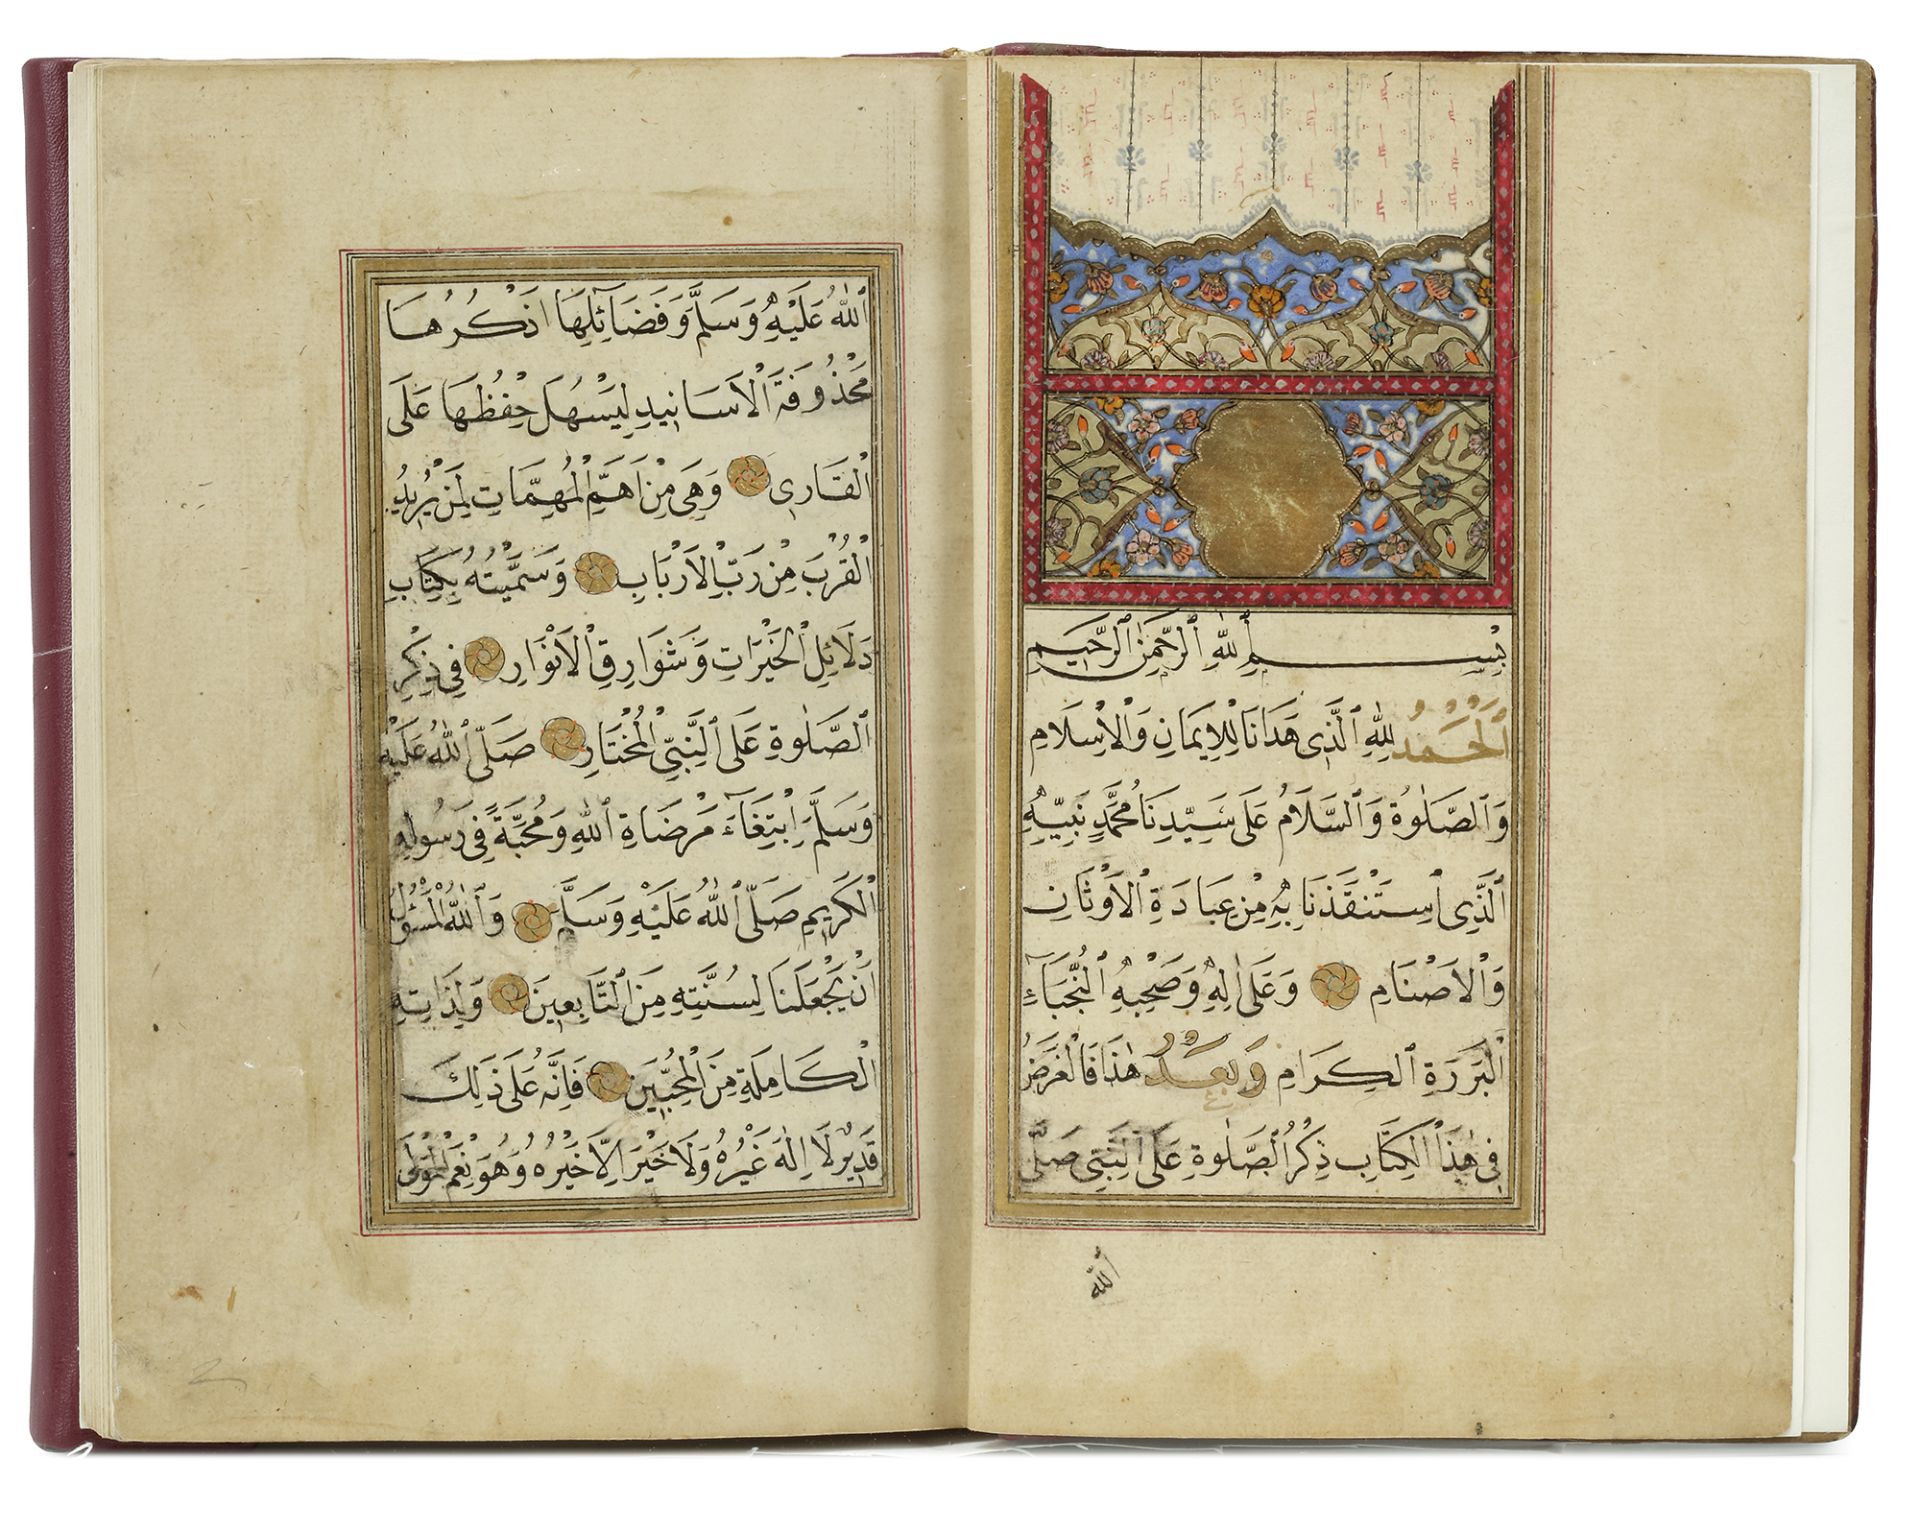 بِسْمِ ٱللّٰهِ ٱلرَّحْمٰنِ ٱلرَّحِيمِ
ٱَلْحَمْدُ لِلّٰهِ ٱلَّذِى هَدَانَا لِلْاِيمَانِ وَالْاِسْلَامِ
وَٱلصَّلٰوةُ وَٱلسَّلَامُ عَلٰى سَيِّدِنَا مُحَمَّدٍ نَبِيِّهِ
ٱلَّذِى ٱسْتَنْقَذَنَا بِهِ مِنْ عِبَادَةِ الْاَوْثَانِ
وَالْاَصْنَامِ وَعَلٰى اٰلِهِ وَصَحْبِهِ ٱلنُّجَبَآءِ
الْبَرَرَةِ ٱلْكِرَامِ وَبَعْدُ هٰذَا فَالْغَرَضُ
فِى هٰذَا الْكِتَابِ ذِكْرُ الصَّلٰوةِ عَلَى ٱلنَّبِىِّ صَلَّى
ٱللّٰه
ٱللّٰهُ عَلَيْهِ وَسَلَّمَ وَفَضَآئِلِهَا اَذْكُرُهَا
مَحْذُوفَةَ الْاَسَانِيدِ لِيَسْهُلَ حِفْظُهَا عَلَى
الْقَارِى وَهِىَ مِنْ اَهَمِّ الْمُهِمَّاتِ لِمَنْ يُرِيدُ
الْقُرْبَ مِنْ رَبِّ الْاَرْبَابِ وَسَمَّيْتُهُ بِكِتَابِ
دَلَائِلِ الْخَيْرَاتِ وَشَوَارِقِ الْاَنْوَارِ فِى ذِكْرِ
ٱلصَّلٰوةِ عَلَى ٱلنَّبِىِّ الْمُخْتَارِ صَلَّى ٱللّٰهُ عَلَيْهِ
وَسَلَّمَ اِبْتِغَآءَ مَرْضَاةِ ٱللّٰهِ وَمَحَبَّةً فِى رَسُولِهِ
الْكَرِيمِ صَلَّى ٱللّٰهُ عَلَيْهِ وَسَلَّمَ وَٱللّٰهُ الْمَسْؤُلُ
اَنْ يَجْعَلَنَا لِسُنَّتِهِ مِنَ ٱلتَّابِعِينَ وَلِذَاتِهِ
الْكَامِلَةِ مِنَ الْمُحِبِّينَ فَاِنَّهُ عَلٰى ذٰلِكَ
قَدِيرٌ لَا اِلٰهَ غَيْرُهُ وَلَا خَيْرَ اِلَّا خَيْرُهُ وَهُوَ نِعْمَ الْمَوْلٰى